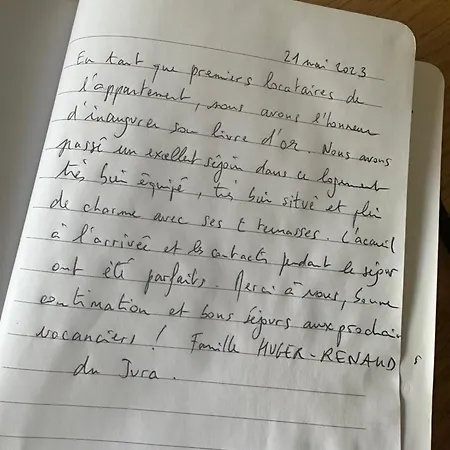 21 mai 2023
En tant que premiers locataires de
l'appartement, nous avons l'honneur
d'inaugurer son livre d'or. Nous avons
passé un excellet séjour dans ce logement
très bien équipé, très bien situé et plein
de charme avec ses terrasses. L'acceuil
à l'arrivée et les contacts pendant le séjour
ont été parfaits. Merci à vous, bonne
continuation et bons séjours aux prochains
vacanciers ! Famille HUGER-RENAUD
du Jura.